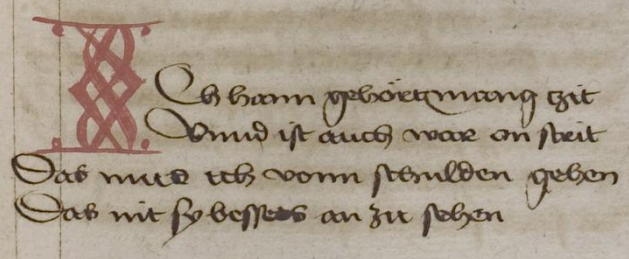 ICh hann gehört mang zit
Vnnd ist auch war on strit
Das mus ich vonn schulden gehen
Das nit sy bessers an zu sehen